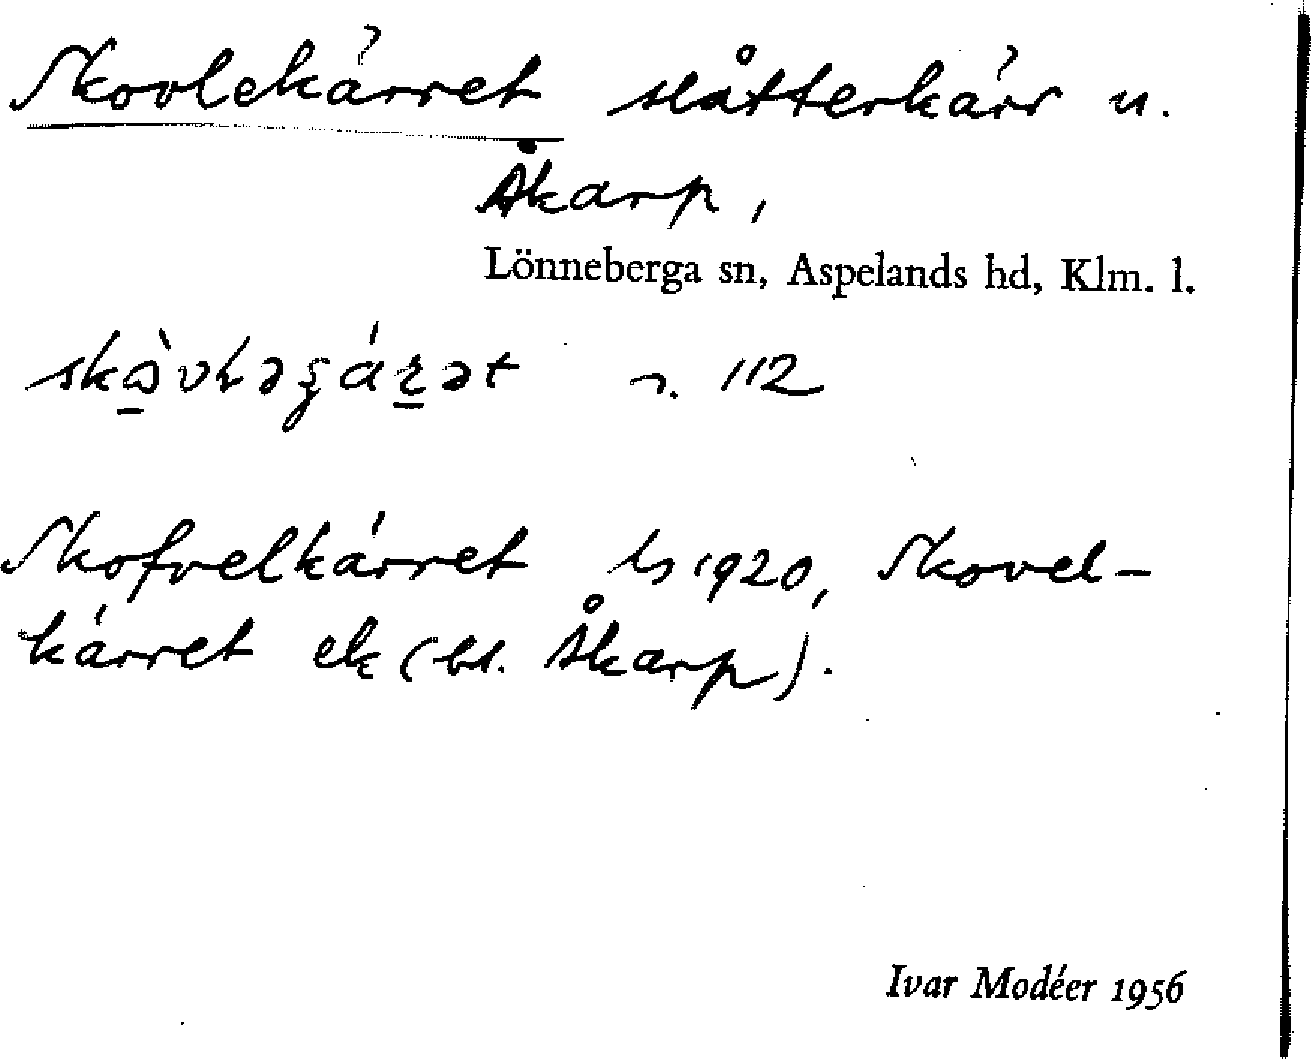 Skovlekärret slåtterkärr u.
Åkarp,
Lönneberga sn, Aspelands hd, Klm. l.
n. 112
Skofvelkärret ls 1920, Skovel-
kärret ek (bl. Åkarp).
Ivar Modéer 1956